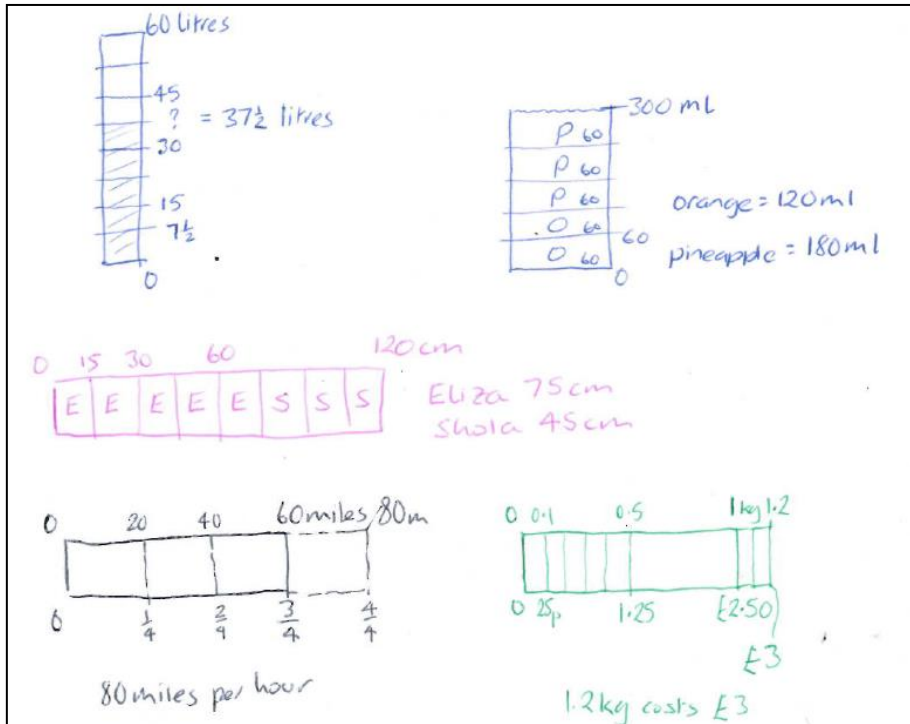 60 litres
45
? = 37½ litres
30
15
7½
0
300 ml
P 60
P 60
P 60
O 60
60
O 60
0
orange = 120ml
pineapple = 180ml
0 15 30 60 120cm
E E E E E S S S
Eliza 75cm
Shola 45cm
0 20 40 60miles 80m
0 1/4 2/4 3/4 4/4
80miles per hour
0 0.1 0.5 1kg 1.2
0 25p 1.25 £2.50
£3
1.2kg costs £3